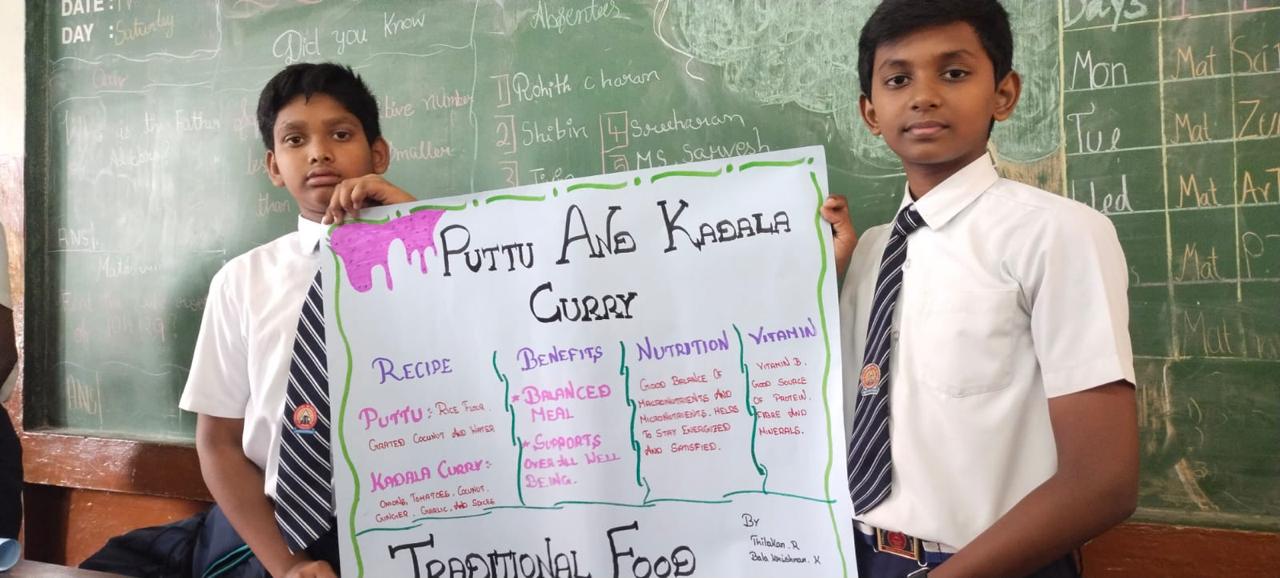 DATE :
DAY : Saturday
Did you Know
Absenties
Quiz
Who is the Father of
Algebra
number
less
smaller
than
ANS|
1 Rohith Charan
2 Shibin
3
4 Sreeharan
5 MS Sarvesh
Days 1
Mon Mat Sci
Tue Mat
Wed Mat Art
Mat P.
Mat
PUTTU AND KADALA
CURRY
RECIPE
PUTTU:- RICE FLOUR.
GRATED COCUNUT AND WATER
KADALA CURRY:-
ONIONS, TOMATOES, COCUNUT,
GINGER, GARLIC, AND SPICES
BENEFITS
* BALANCED
MEAL
* SUPPORTS
OVER ALL WELL
BEING.
NUTRITION
GOOD BALANCE OF
MACRONUTRIENTS AND
MICRONUTRIENTS. HELPS
TO STAY ENERGIZED
AND SATISFIED.
VITAMIN
VITAMIN B.
GOOD SOURCE
OF PROTEIN,
FIBRE AND
MINERALS.
TRADITIONAL FOOD
By
Thilakan. R
Bala Krishnan. K